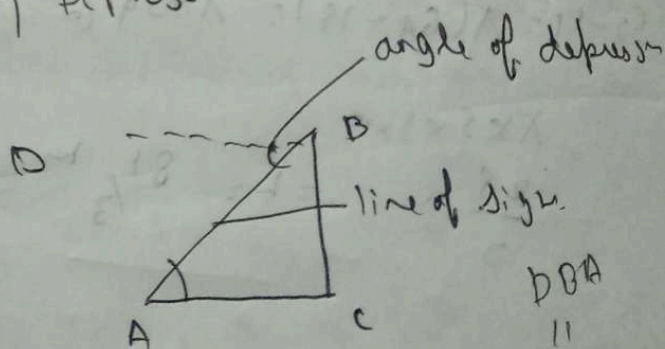 angle of depression
B
D
line of sight
DBA
A
C
11